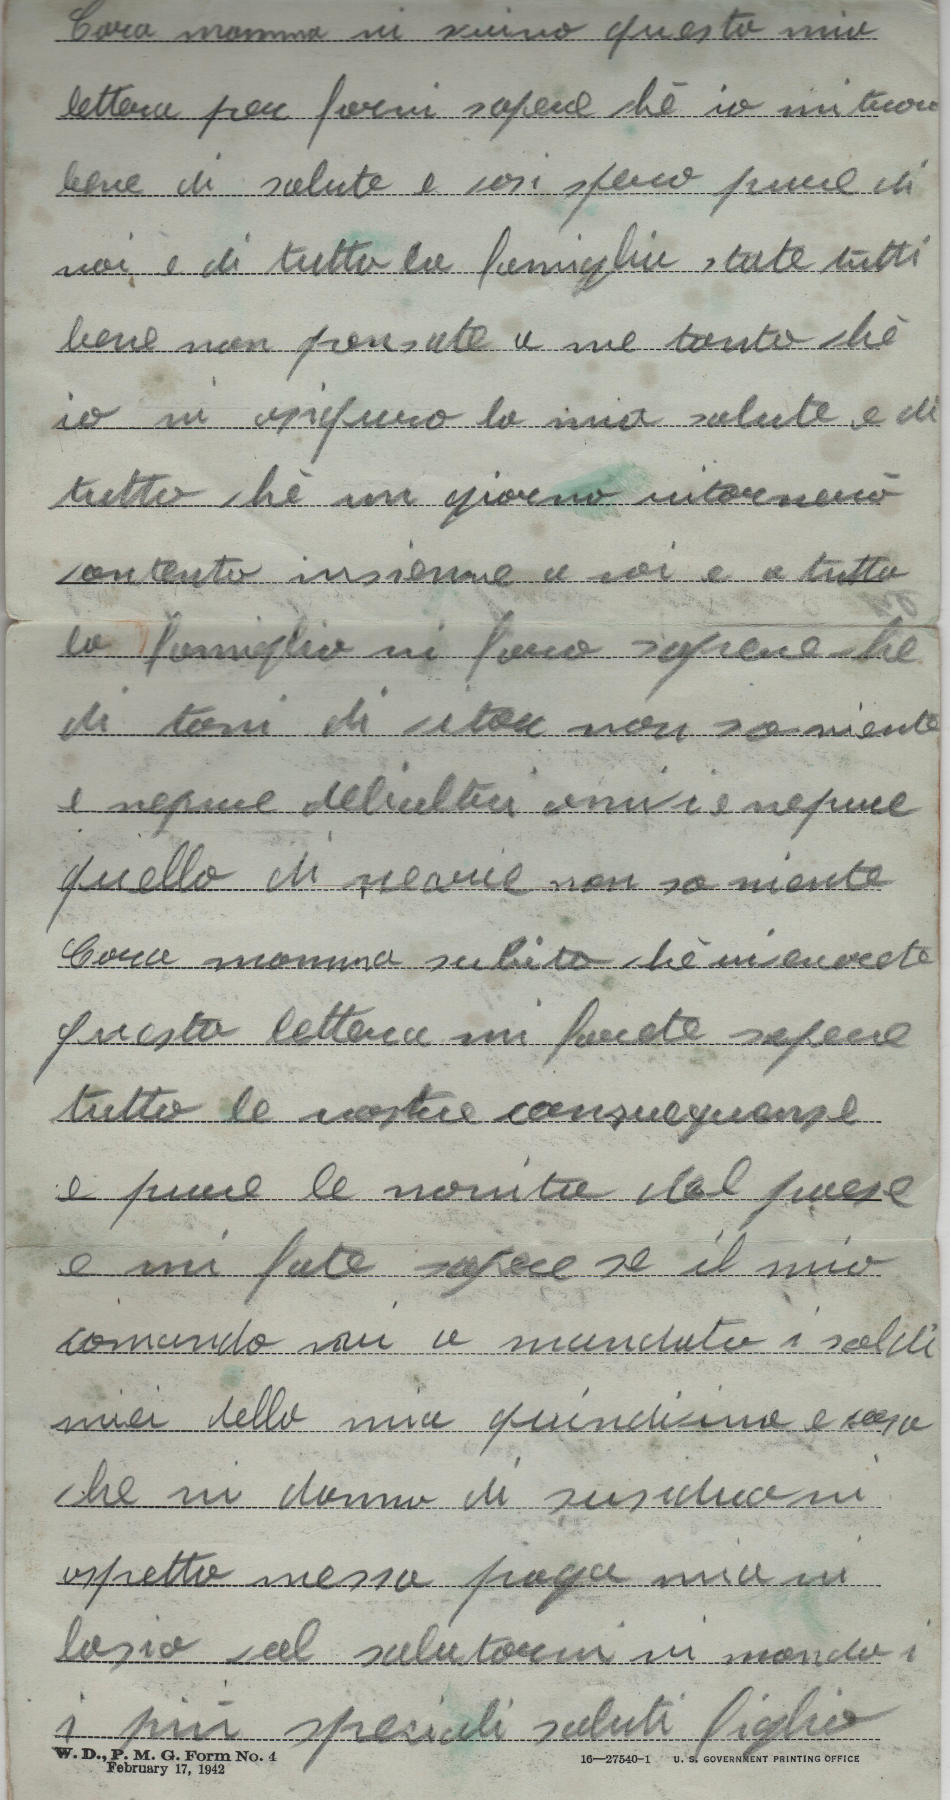 Cara mamma vi scrivo questa mia
lettera per farvi sapere ché io mi trovo
bene di salute e cosi spero pure di
voi e di tutta la famiglia state tutti
bene non pensate a me tanto ché
io vi asiquro la mia salute e di
tutto ché un giorno ritorneró
contento insieme a voi e a tutta
la famiglia vi facio sapere che
di toni di non so niente
e nepure amici e nepure
quello di non so niente
Cara mamma subito ché riceverete
questa lettera mi farete sapere
tutto le vostre
e pure le novita del paese
e mi fate sapere se il mio
comando vi a mandato i soldi
miei della mia quindicina e cosa
che vi danno di susidio vi
aspetta messa paga mia vi
lasio col salutarvi vi mando i
i piú speciali saluti figlio
W. D., P. M. G. Form No. 4
February 17, 1942
16—27540-1 U. S. GOVERNMENT PRINTING OFFICE